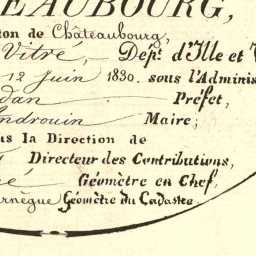 EAUBOURG,
ton de Châteaubourg,
Vitré, Dépt. d'Ille et V
12 Juin 1830. sous l'Adminis
dan Préfet,
Androuin Maire;
us la Direction de
Directeur des Contributions,
ré Géomètre en Chef,
arnègue Géomètre du Cadastre.